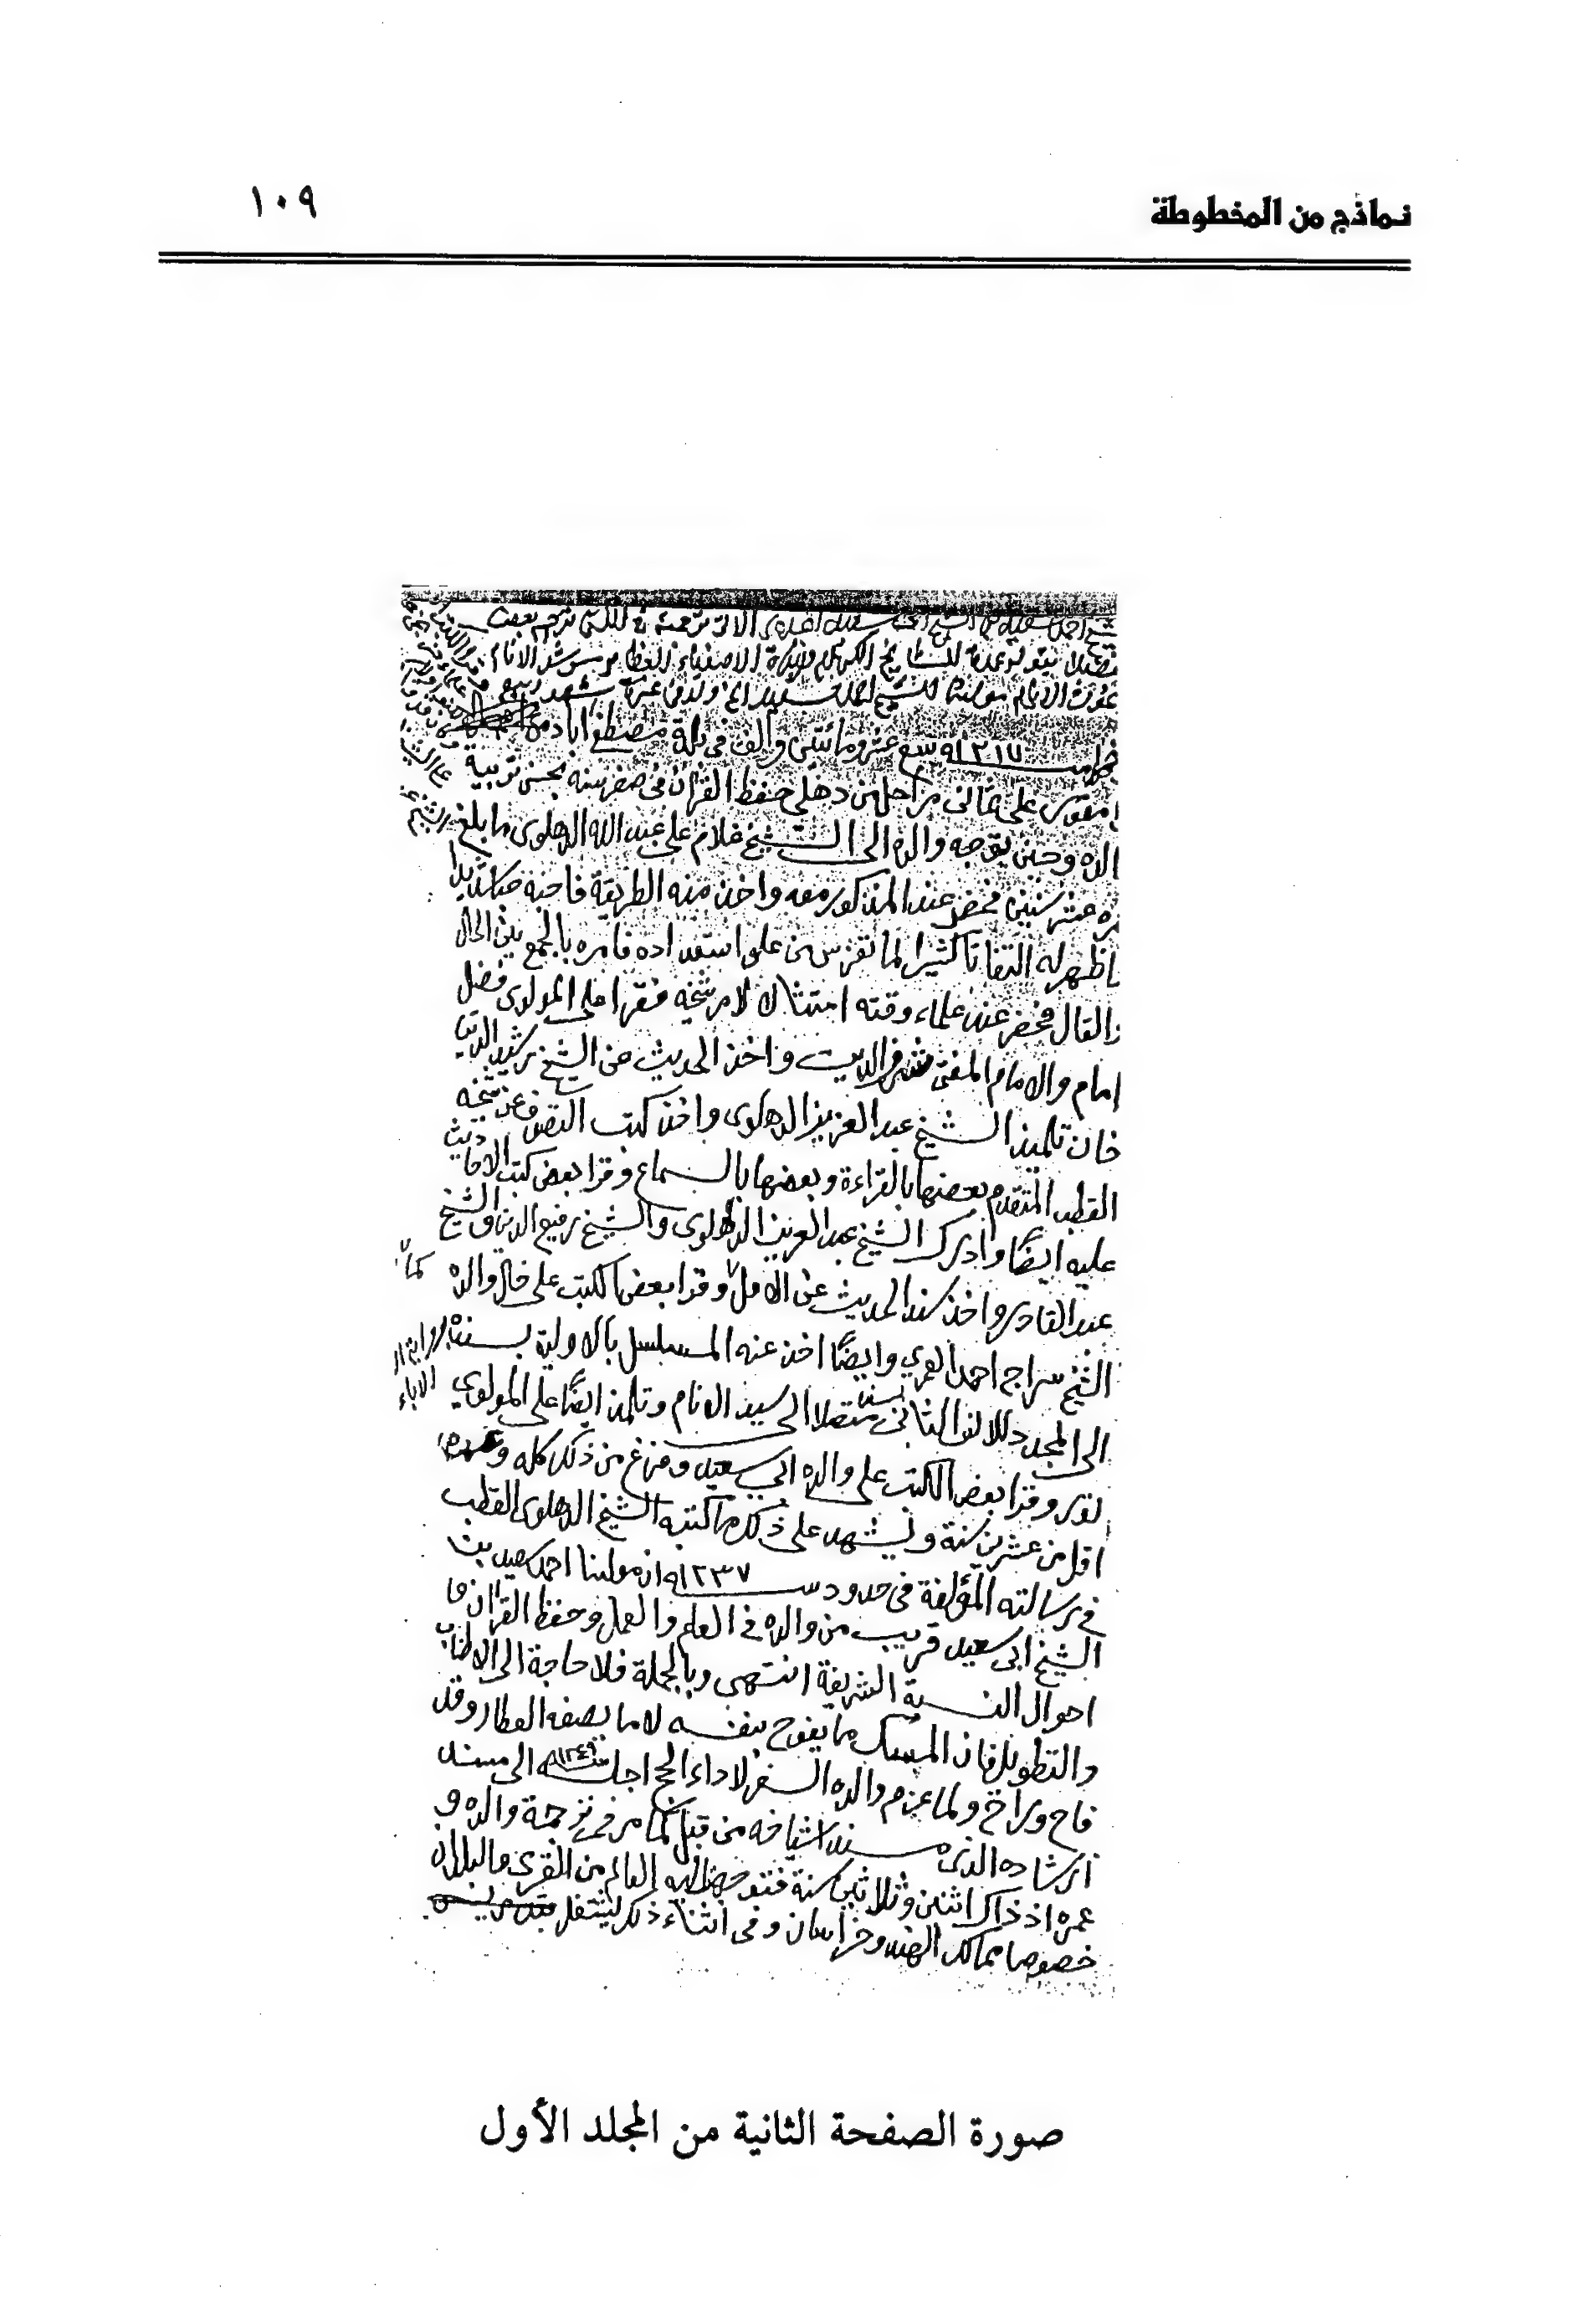 نماذج من المخطوطة
١٠٩
سبع عشر ومائتين والف في بلدة مصطفى آباد
على ثماني مراحل من دهلي حفظ القرآن في صغر سنه بحسن تربية
والده وحين توجه والده الى الشيخ غلام علي عبد الله الدهلوي ما بلغ
عشر سنين فحضر عند المذكور معه واخذ منه الطريقة فاحبه حبا شديدا
اظهر له التفاتا كثيرا لما تفرس من علو استعداده فامره بالجمع بين الحال
والقال فحضر عند علماء وقته امتثالا لامر شيخه فقرا على المولوي فضل
امام والامام المفتي شرف الدين واخذ الحديث عن الشيخ رشيد الدين
خان تلميذ الشيخ عبد العزيز الدهلوي واخذ كتب التصوف عن شيخه
القطب المتقدم بعضها بالقراءة وبعضها بالسماع وقرا بعض كتب الاحاديث
عليه ايضًا وادرك الشيخ عبد العزيز الدهلوي والشيخ رفيع الدين والشيخ
عبد القادر واخذ سند الحديث عن الاول وقرا بعض الكتب على خال والده
الشيخ سراج احمد العمري وايضًا اخذ عنه المسلسل بالاولية بسنده
الى المجدد للالف الثاني متصلا الى سيد الانام وتلمذ ايضًا على المولوي
نور وقرا بعض الكتب على والده ابي سعيد وفرغ من ذلك كله وعمره
اقل من عشرين سنة ويشهد على ذلك ما كتبه الشيخ الدهلوي القطب
في رسالته المؤلفة في حدود سنة ١٢٣٧ ان مولينا احمد سعيد بن
الشيخ ابي سعيد قريب من والده في العلم والعمل وحفظ القرآن
احوال النسبة الشريفة انتهى وبالجملة فلا حاجة الى الاطناب
والتطويل فان المسك ما يفوح بنفسه لا ما يصفه العطار وقد
فاح وراح ولما عزم والده السفر لاداء الحج اجلسه ١٢٤٩ الى مسند
ارشاده الذي مسند اشياخه من قبل كما مر في ترجمة والده و
عمره اذ ذاك اثنين وثلاثين سنة فتوجه اليه العالم من القرى والبلدان
خصوصا ممالك الهند وخراسان وفي اثناء ذلك ليشتغل بتدريس
صورة الصفحة الثانية من المجلد الأول